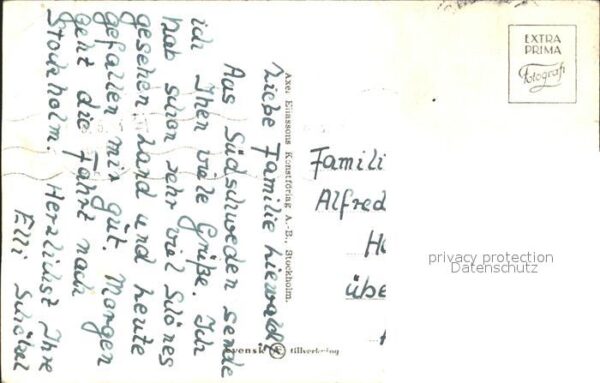 Liebe Familie Liewald!
Aus Südschweden sende
ich Ihnen viele Grüße. Ich
hab schon sehr viel Schönes
gesehen Land und heute
gefallen mir gut. Morgen
geht die Fahrt nach
Stockholm. Herzlichst Ihre
Elli Schökel
Axel Eliassons Konstförlag A.-B., Stockholm.
EXTRA
PRIMA
Fotografi
Famili
Alfred
übe
privacy protection
Datenschutz
Svensk tillverkning